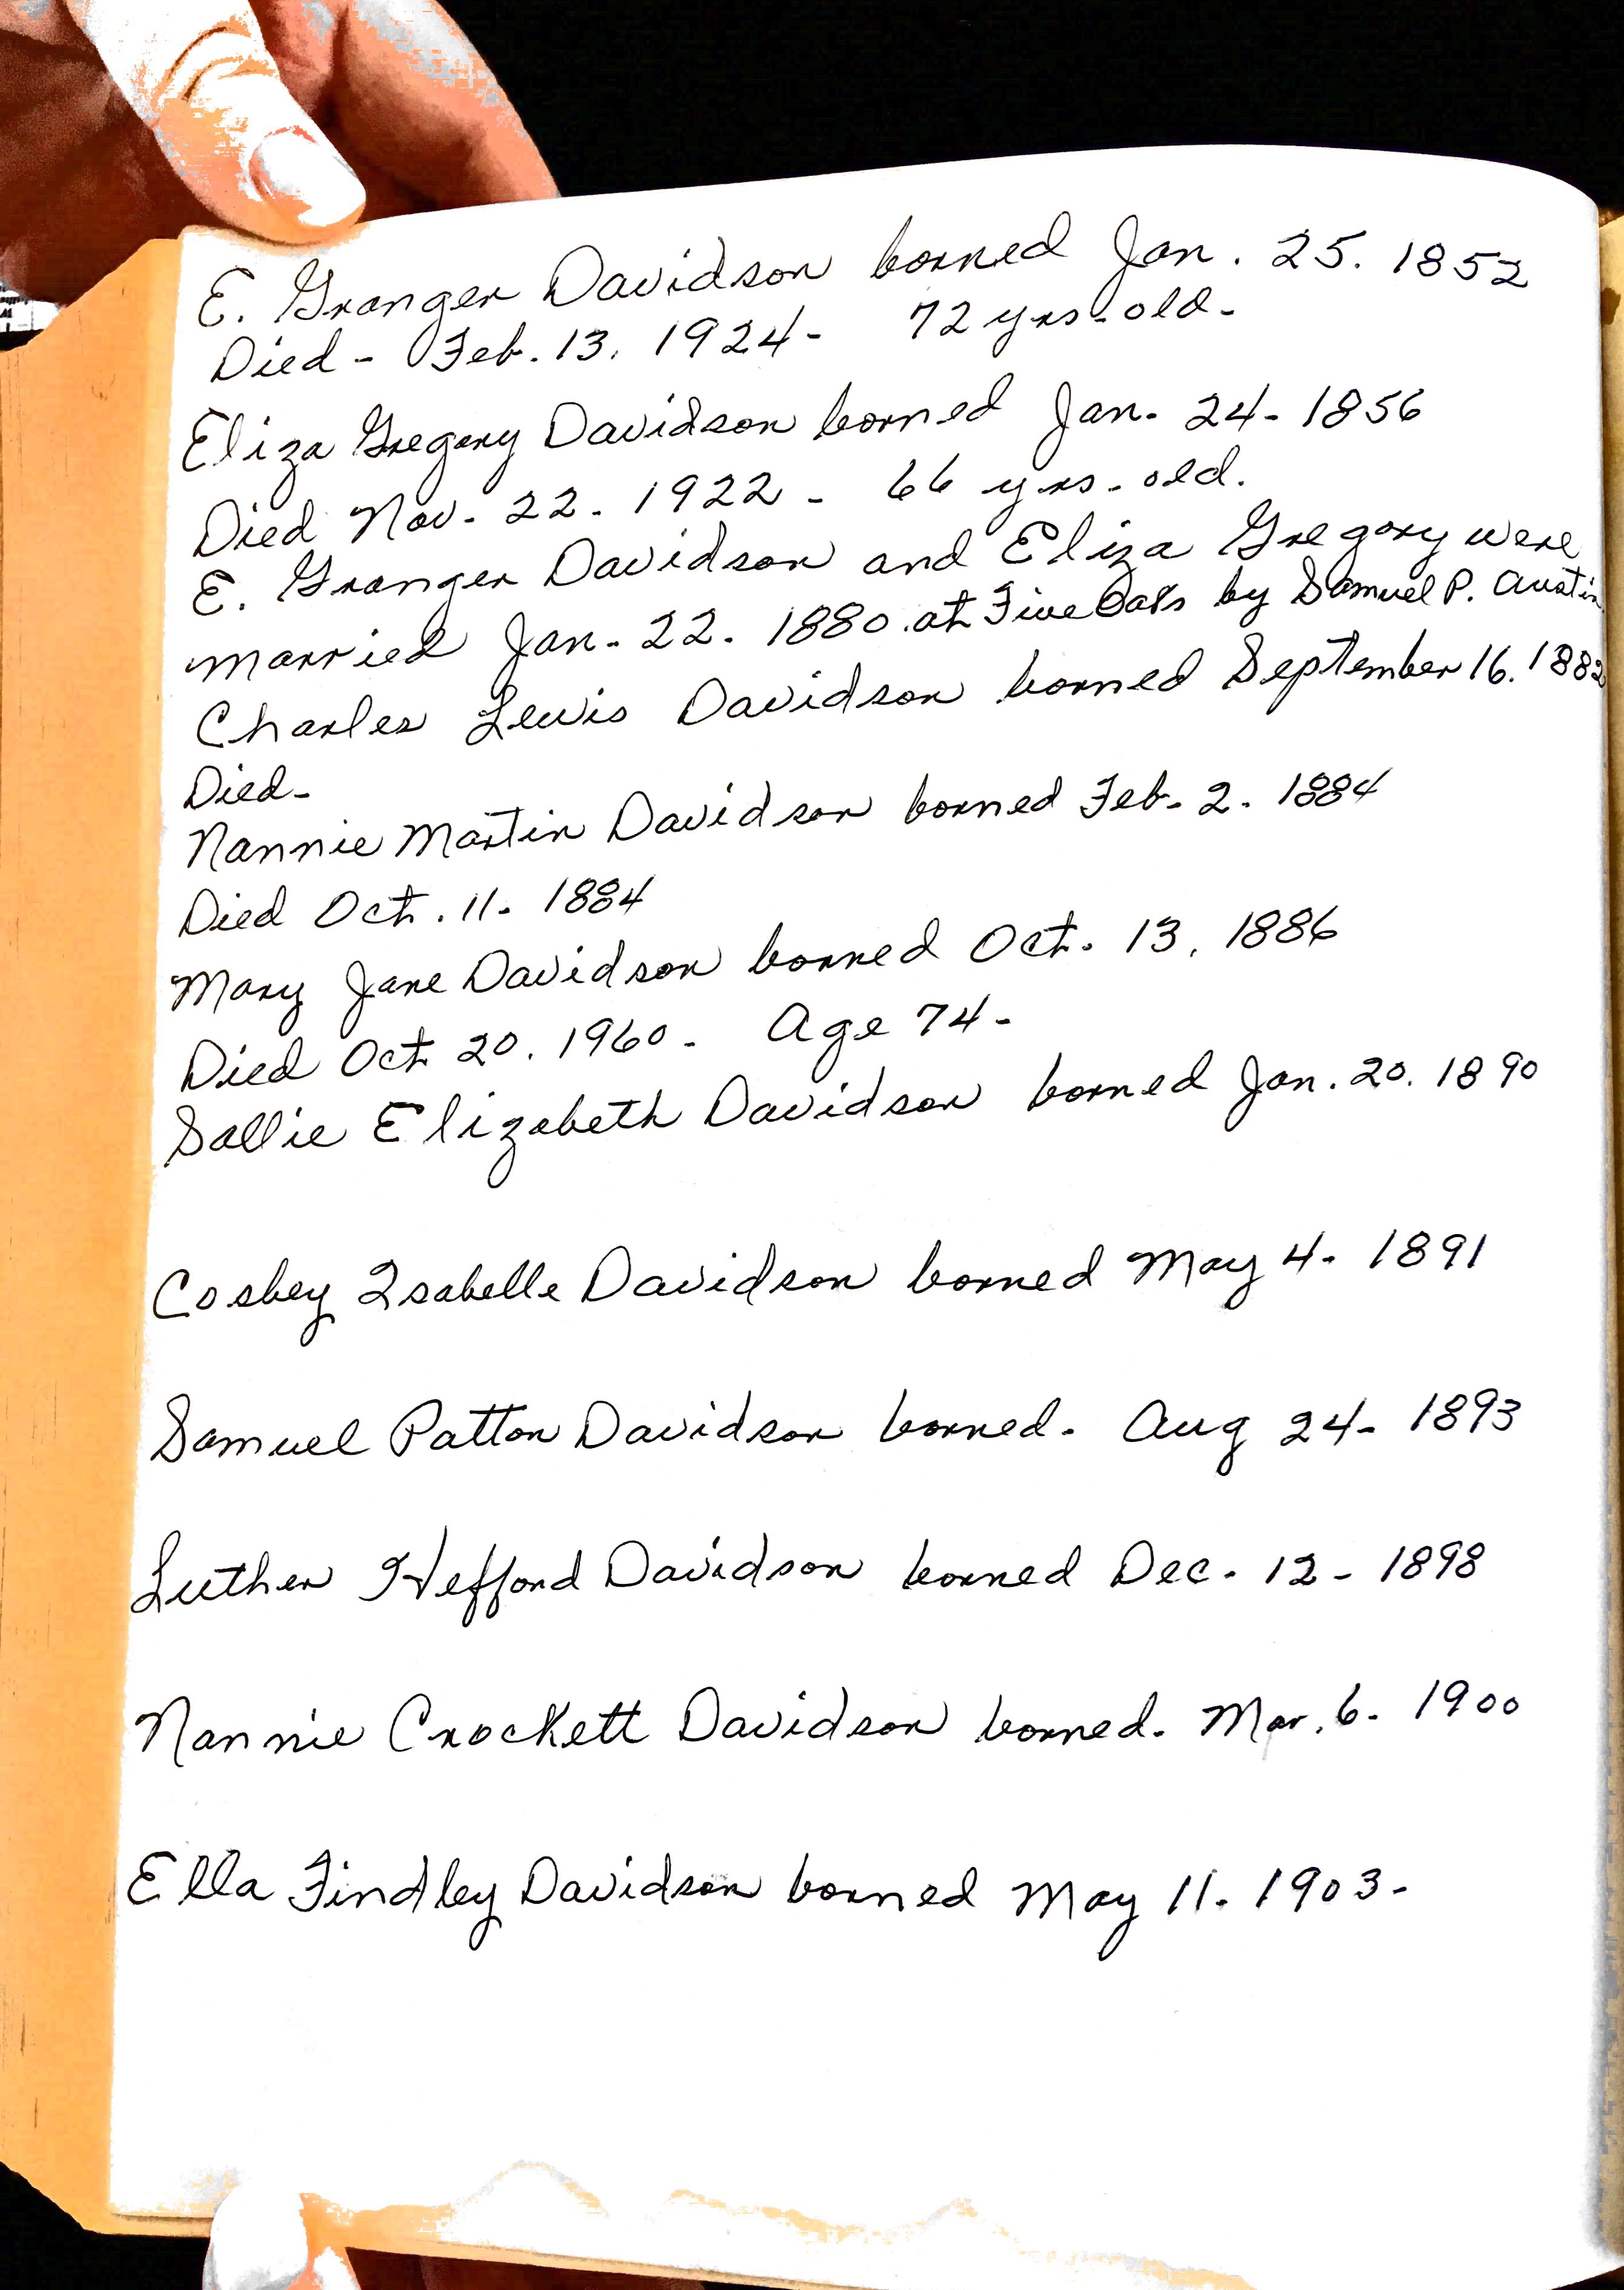 E. Granger Davidson borned Jan. 25. 1852
Died - Feb. 13. 1924 - 72 yrs. old -
Eliza Gregory Davidson borned Jan. 24 - 1856
Died Nov. 22. 1922 - 66 yrs. old.
E. Granger Davidson and Eliza Gregory were
married Jan. 22. 1880 at Five Oaks by Samuel P. Austin
Charles Lewis Davidson borned September 16. 1882
Died -
Nannie Martin Davidson borned Feb. 2. 1884
Died Oct. 11. 1884
Mary Jane Davidson borned Oct. 13. 1886
Died Oct 20. 1960 - Age 74 -
Sallie Elizabeth Davidson borned Jan. 20. 1890
Cosbey Isabelle Davidson borned May 4 - 1891
Samuel Patton Davidson borned. Aug 24 - 1893
Luther Hefford Davidson borned Dec. 12 - 1898
Nannie Crockett Davidson borned. Mar. 6 - 1900
Ella Findley Davidson borned May 11. 1903 -